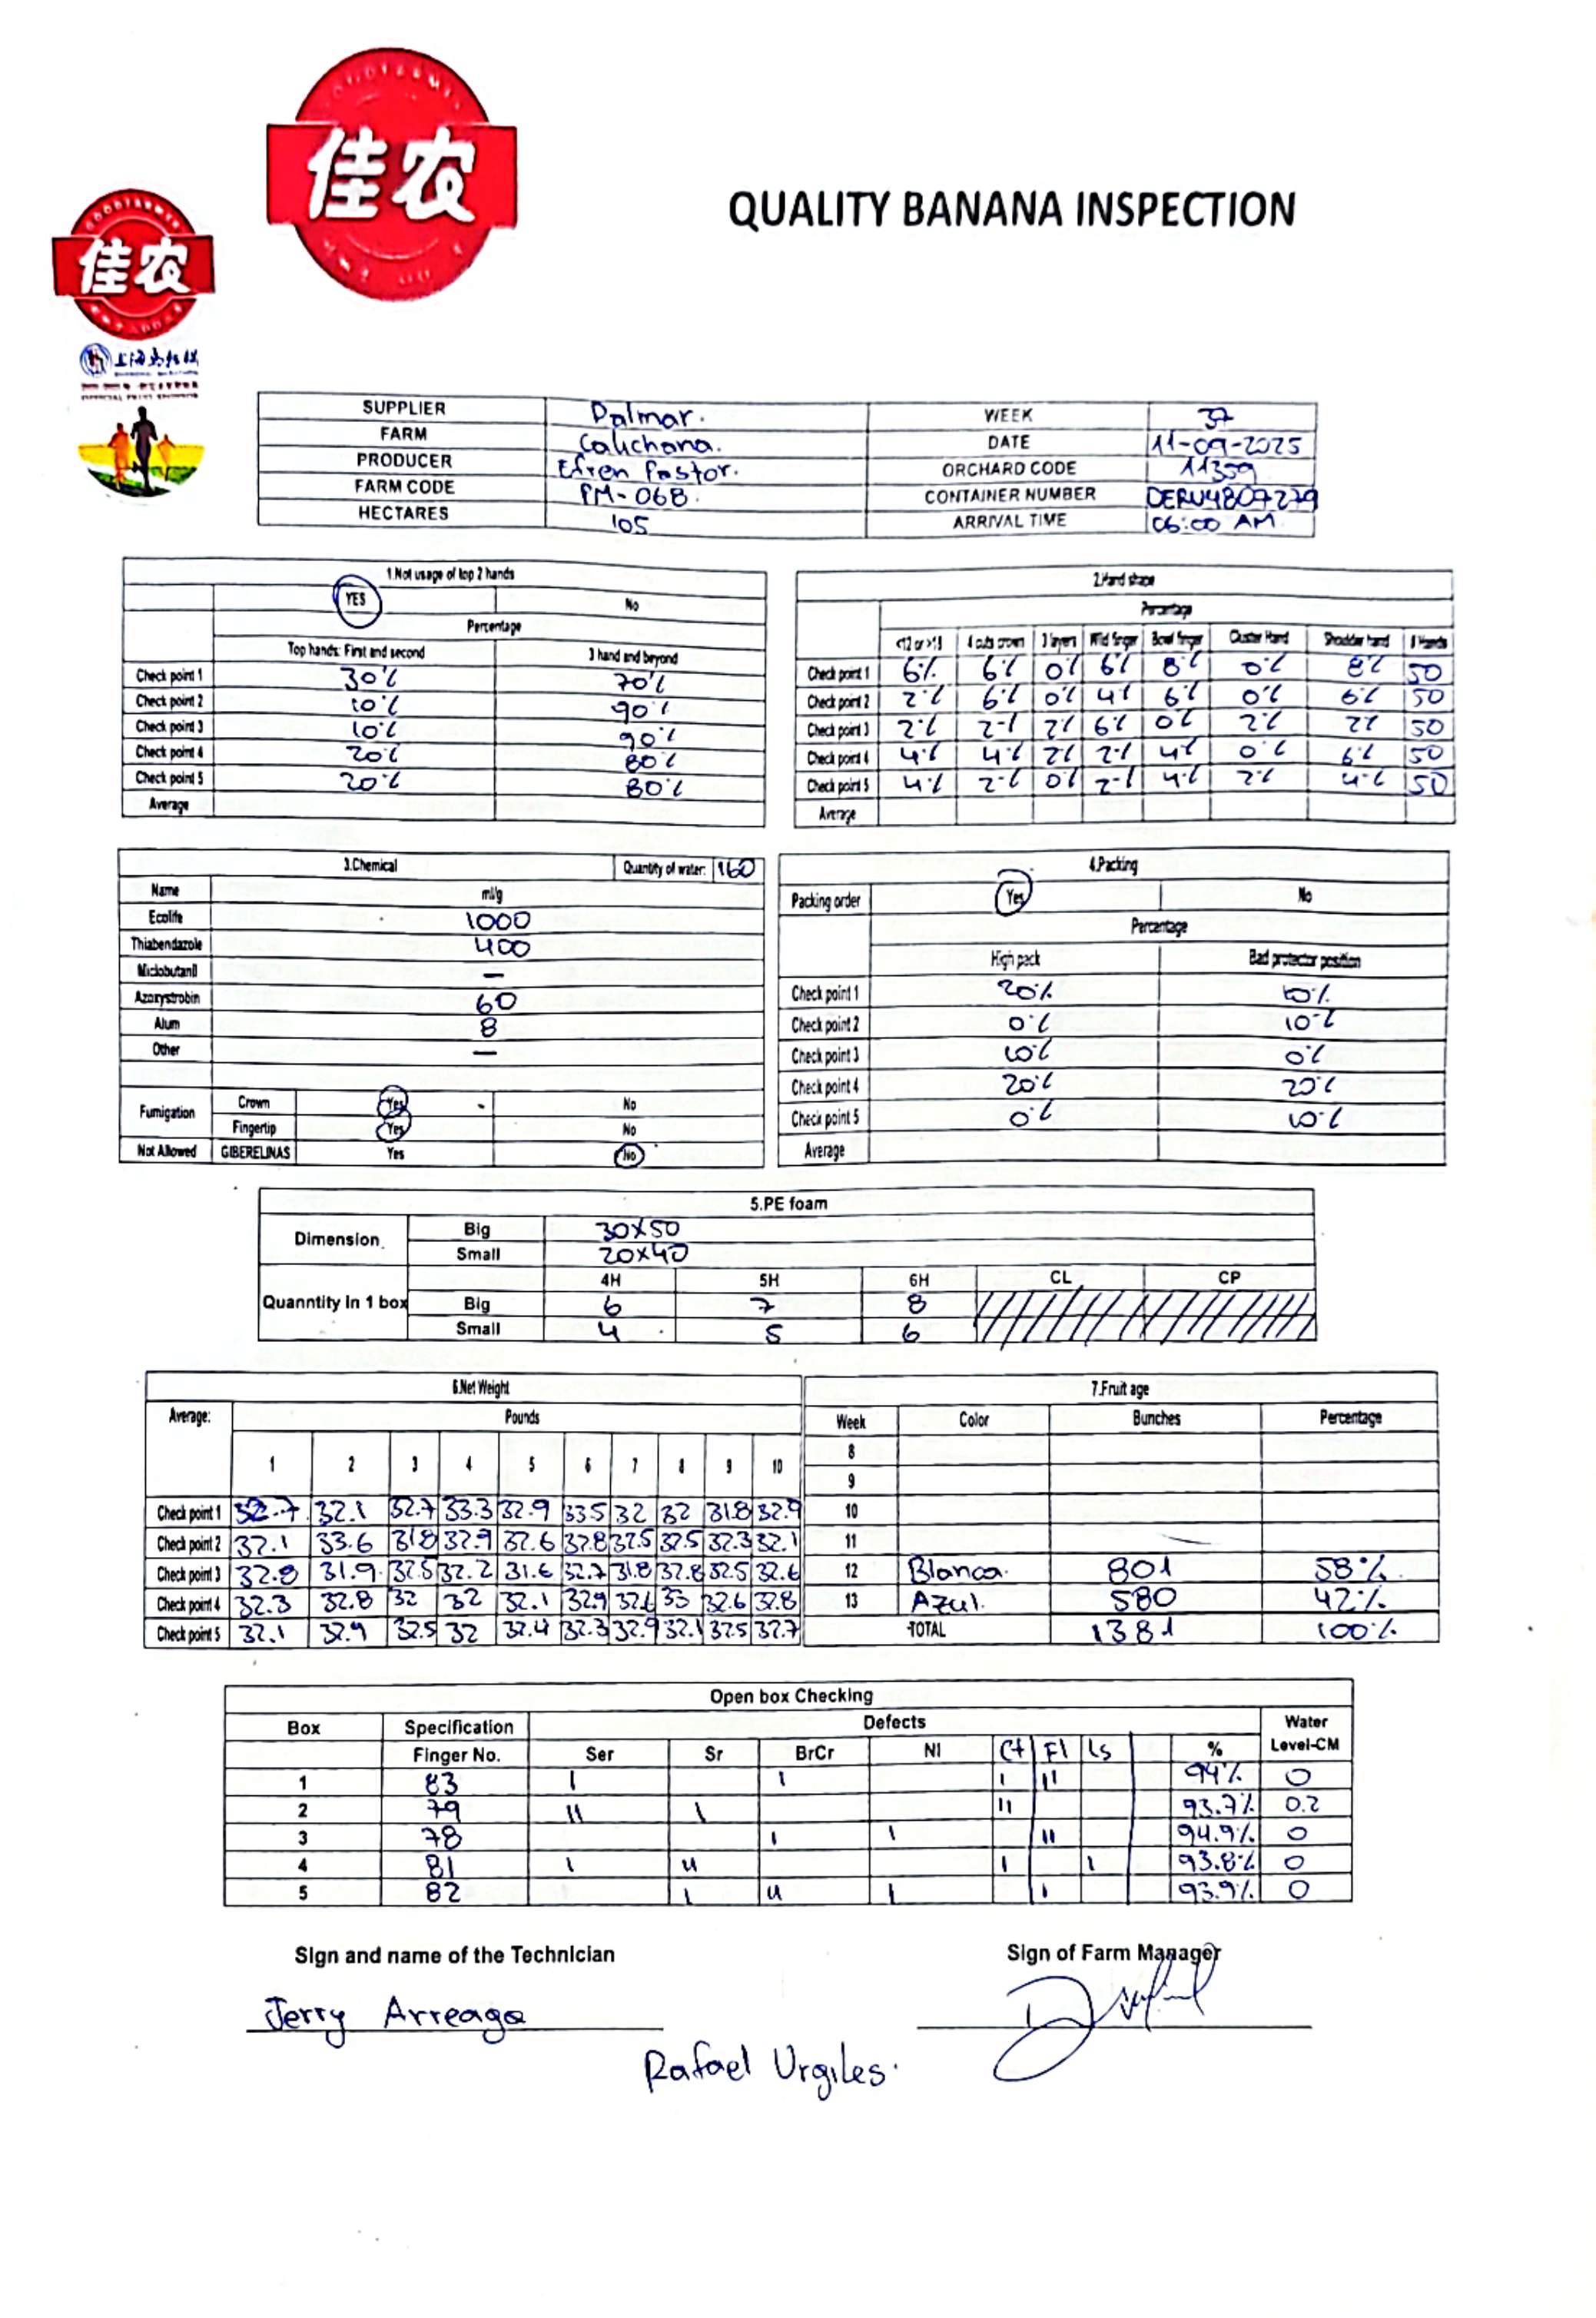 佳农
佳农
QUALITY BANANA INSPECTION
SUPPLIER Dalmar. WEEK 37
FARM Calichana. DATE 11-09-2025
PRODUCER Efren Pastor. ORCHARD CODE 11359
FARM CODE PM-068. CONTAINER NUMBER DERU4807279
HECTARES 105 ARRIVAL TIME 06:00 AM
1.Not usage of top 2 hands
YES No
Percentage
Top hands: First and second 3 hand and beyond
Check point 1 30% 70%
Check point 2 10% 90%
Check point 3 10% 90%
Check point 4 20% 80%
Check point 5 20% 80%
Average
2.Hand shape
Percantage
<12 or >18 4 cuts crown 3 layers Wild finger Bowl finger Cluster Hand Shoulder hand # Hands
Check point 1 6% 6% 0% 6% 8% 0% 8% 50
Check point 2 2% 6% 0% 4% 6% 0% 6% 50
Check point 3 2% 2% 2% 6% 0% 2% 2% 50
Check point 4 4% 4% 2% 2% 4% 0% 6% 50
Check point 5 4% 2% 0% 2% 4% 2% 4% 50
Average
3.Chemical Quantity of water: 160
Name ml/g
Ecolife 1000
Thiabendazole 400
Miclobutanil —
Azoxystrobin 60
Alum 8
Other —
Fumigation Crown Yes No
Fingertip Yes No
Not Allowed GIBERELINAS Yes No
4.Packing
Packing order Yes No
Percentage
High pack Bad protector position
Check point 1 20% 10%
Check point 2 0% 10%
Check point 3 10% 0%
Check point 4 20% 20%
Check point 5 0% 10%
Average
5.PE foam
Dimension Big 30x50
Small 20x40
4H 5H 6H CL CP
Quanntity in 1 box Big 6 7 8
Small 4 5 6
6.Net Weight
Average: Pounds
1 2 3 4 5 6 7 8 9 10
Check point 1 32.7 32.1 32.7 33.3 32.9 33.5 32 32 31.8 32.9
Check point 2 32.1 33.6 31.8 32.9 32.6 32.8 32.5 32.5 32.3 32.1
Check point 3 32.8 31.9 32.5 32.2 31.6 32.7 31.8 32.8 32.5 32.6
Check point 4 32.3 32.8 32 32 32.1 32.9 32.6 33 32.6 32.8
Check point 5 32.1 32.9 32.5 32 32.4 32.3 32.9 32.1 32.5 32.7
7.Fruit age
Week Color Bunches Percentage
8
9
10
11
12 Blanca. 801 58%
13 Azul. 580 42%
TOTAL 1381 100%
Open box Checking
Box Specification Defects Water
Finger No. Ser Sr BrCr NI Ct Fl Ls % Level-CM
1 83 I I I II 94% 0
2 79 II I II 93.7% 0.2
3 78 I I II 94.9% 0
4 81 I II I I 93.8% 0
5 82 I II I I 93.9% 0
Sign and name of the Technician Sign of Farm Manager
Jerry Arreaga
Rafael Urgiles.